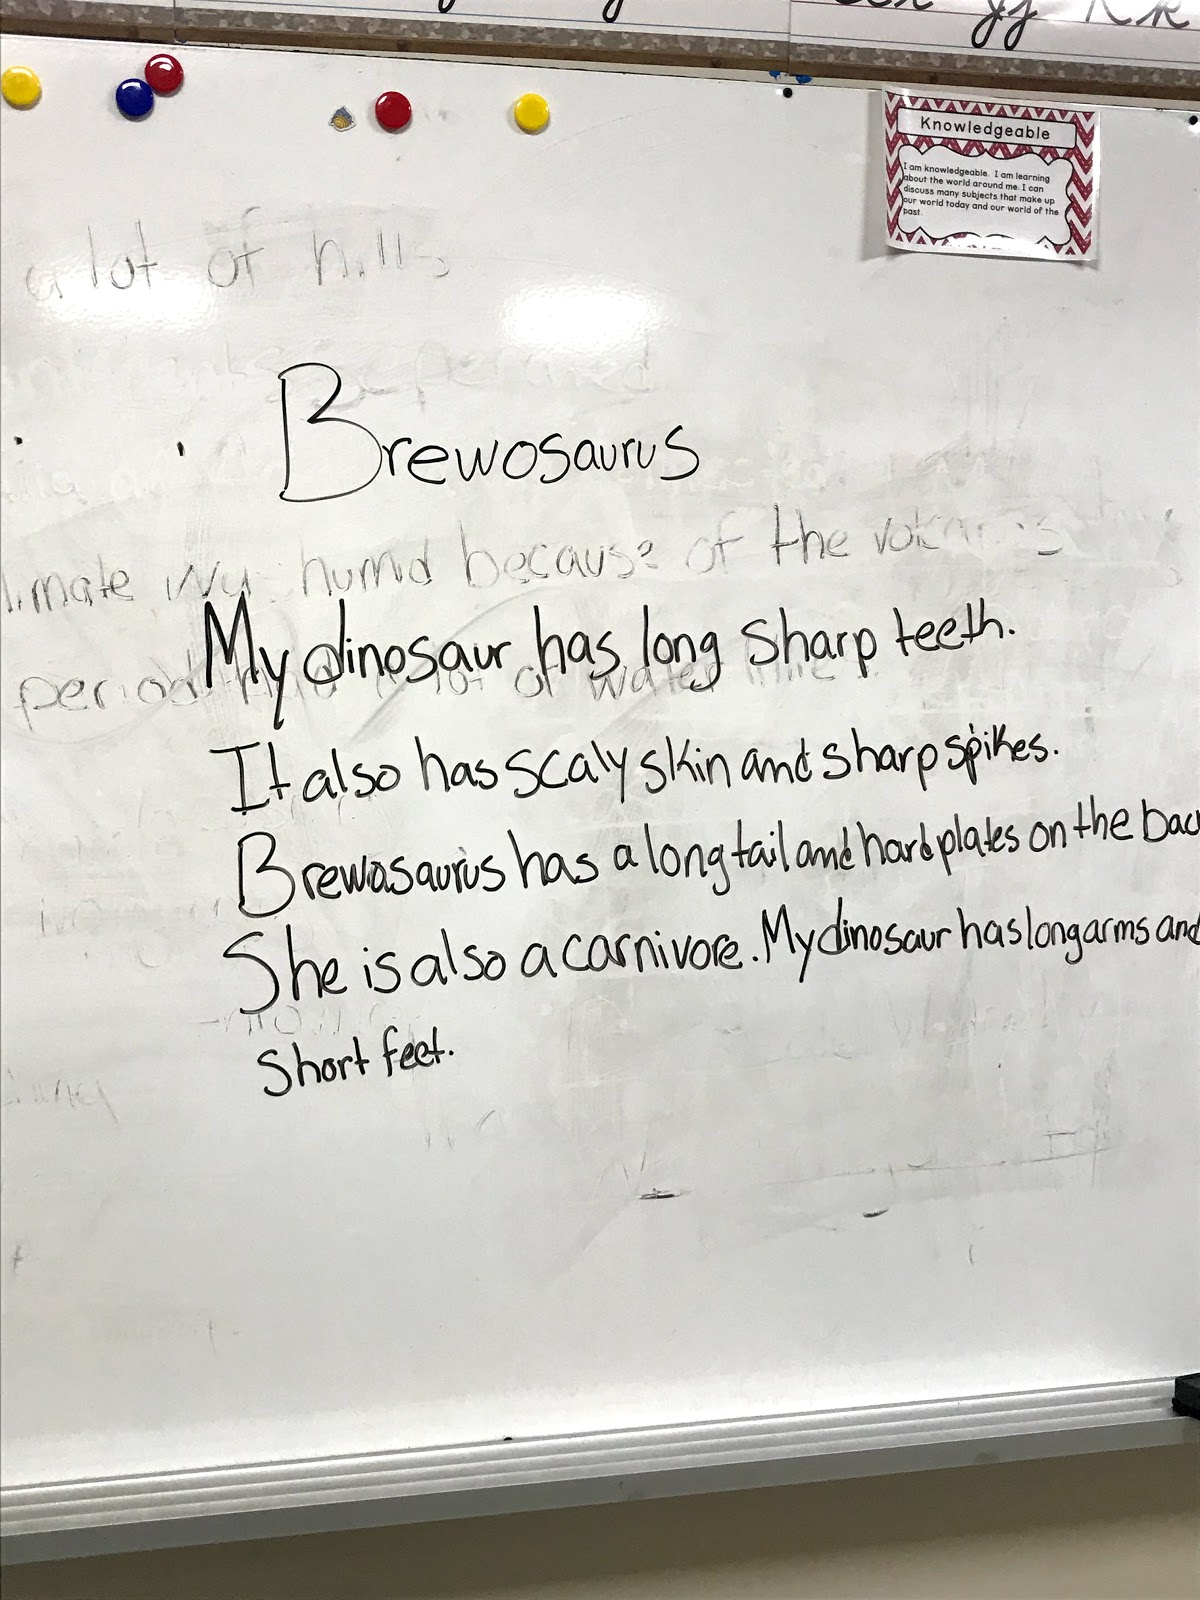 Jj Kk
Knowledgeable
I am knowledgeable. I am learning
about the world around me. I can
discuss many subjects that make up
our world today and our world of the
past.
a lot of hills
Brewosaurus
humid because of the
My dinosaur has long sharp teeth.
period of water
It also has scaly skin and sharp spikes.
Brewosaurus has a long tail and hard plates on the bac
She is also a carnivore. My dinosaur has long arms and
short feet.